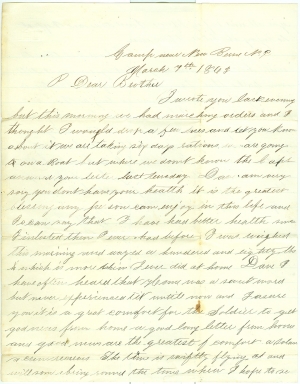 Camp near New Berne N.C
March 7th 1863
Dear Brother
I wrote you last evening
but this morning we had marching orders and I
thought I would drop a few lines and let you know
about it we are taking six day rations
on a Boat but where we don't know
last tuesday Dan I am very
sorry you don't have your health it is the greatest
blessing any person can enjoy in this life and
I can say that I have had better health since
I enlisted than I ever had before I was weighed
this morning and weighed a hundred and sixty
which is more than I ever did at home Dan I
have often heard that home was a sweet word
but never experienced it until now and I assure
you it is a great comfort for the Soldier to get
good news from home a good long letter from home
and good news are the greatest of comfort a Soldier
The time is swiftly flying at and
will soon bring round the time when I hope to